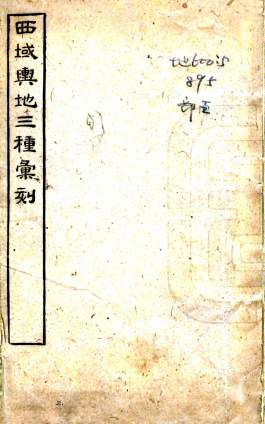 西域輿地三種彙刻
地600.5
895